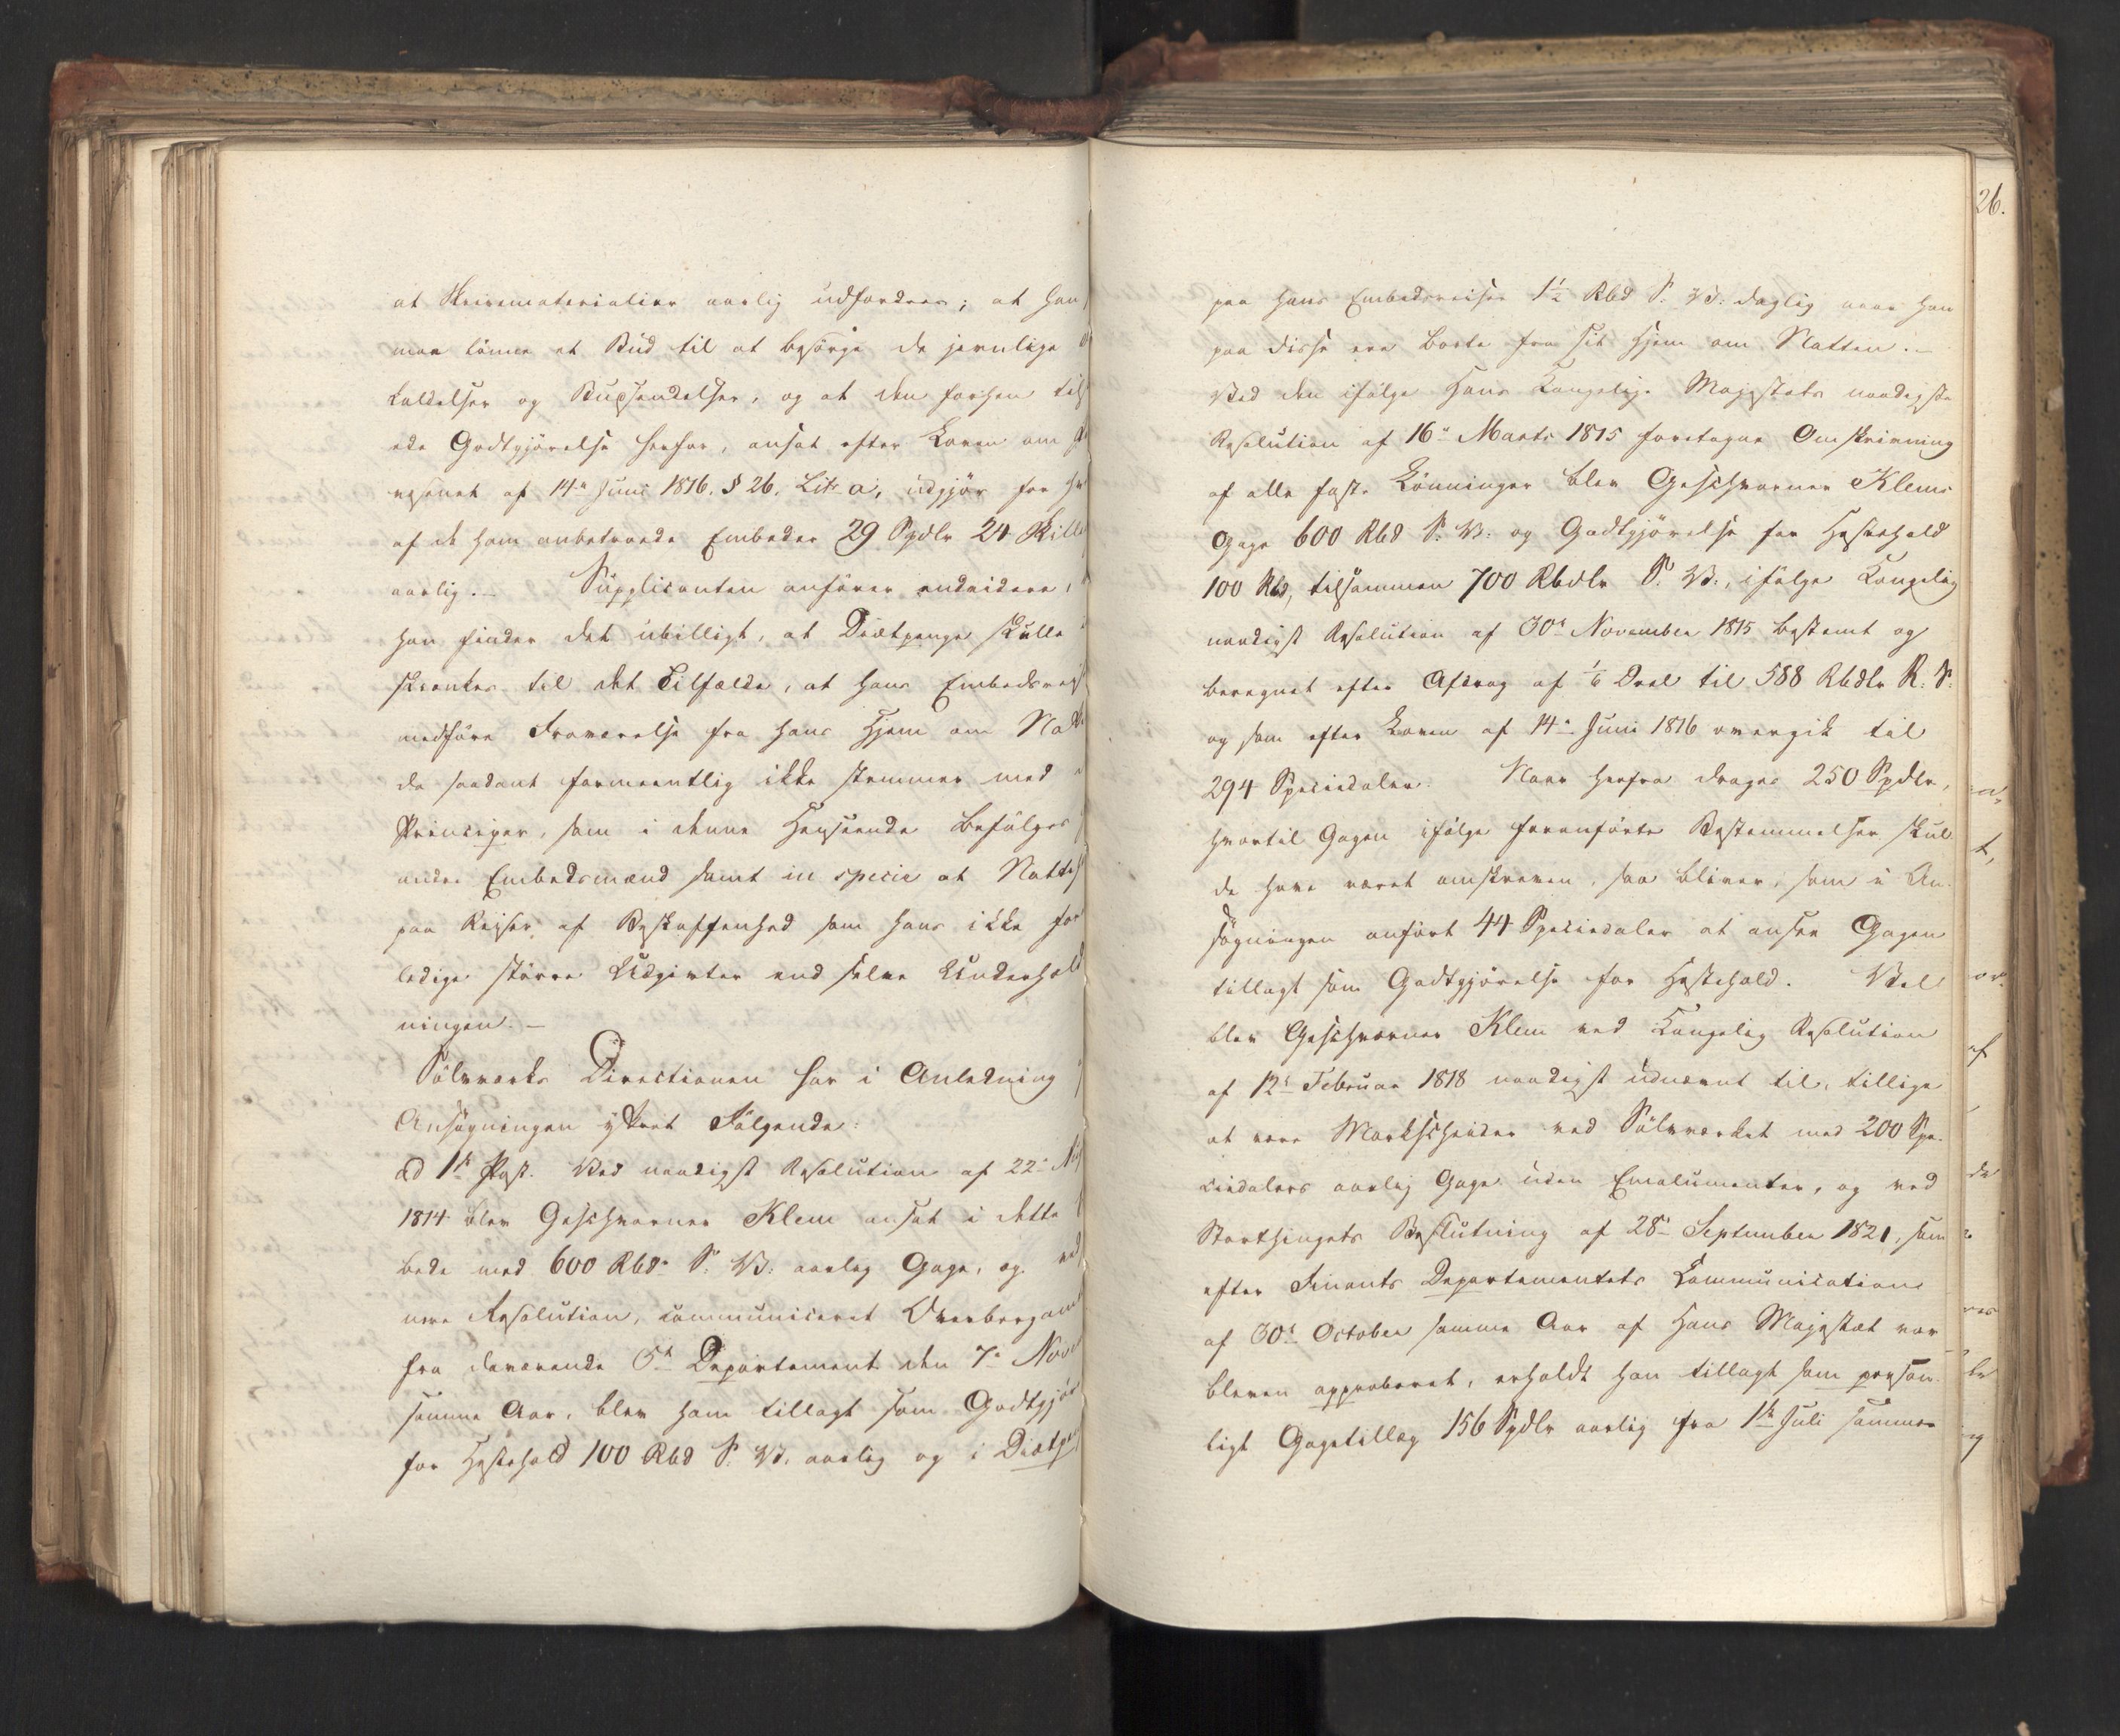 at Skrivematerialier aarlig udfordres; at han
maa lönne et Bud til at besörge de jevnlige
Kaldelser og Budsendelser, og at den forhen til
ede Godtgjörelse herfor, ansat efter Loven om
væsenet af 14de Juni 1816. § 26. Litr a, udgjör for
af de ham anbetroede Embeder 29 Spdlr 24 Skill
aarlig. – Supplicanten anförer endvidere,
han finder det ubilligt, at Diætpenge skulle
skrænkes til det Tilfælde, at hans Embedsrejs
medföre Fraværelse fra hans Hjem om Natte
da saadant formeentlig ikke stemmer med
Principer, som i denne Henseende befölges
andre Embedsmænd samt in specie at Natte
paa Rejser af Beskaffenhed som hans ikke for
ledige större Udgivter end selve Underhold
ningen. –
Sölvværks Directionen har i Anledning
Ansögningen yttret Fölgende:
Ad 1ste Post. Ved naadigst Resolution af 22de
1814 blev Geschworner Klem ansat i dette
bede med 600 Rbd. S. V. aarlig Gage, og ved
nere Resolution, communiceret Overbergam
fra daværende 5te Departement den 7de Nove
samme Aar, blev ham tillagt som Godtgjör
for Hestehold 100 Rbd S. V. aarlig og i Diætpe
26.
paa hans Embedsreiser 1½ Rbd S. V. daglig naar han
paa disse var borte fra sit Hjem om Natten. –
Ved den ifölge Hans Kongelige Majestæts naadigste
Resolution af 16de Marts 1815 foretagne Omskrivning
af alle faste Lönninger blev Geschworner Klems
Gage 600 Rbd S. V. og Godtgjörelse for Hestehold
100 Rbd, tilsammen 700 Rbdlr S. V., ifölge Kongelig
naadigst Resolution af 30te November 1815 bestemt og
beregnet efter Afdrag af 1/6 Deel til 588 Rbdlr R. S.
og som efter Loven af 14de Juni 1816 overgik til
294 Speciedaler. Naar herfra drages 250 Spdlr,
hvortil Gagen ifölge foranförte Bestemmelser skul
de have været omskreven, saa bliver, som i An
sögningen anfört 44 Speciedaler at ansee Gagen
tillagt som Godtgjörelse for Hestehold. Vel
blev Geschworner Klem ved Kongelig Resolution
af 12te Februar 1818 naadigst udnævnt til, tillige
at være Markscheider ved Sölvværket med 200 Spe
ciedalers aarlig Gage uden Emolumenter, og ved
Storthingets Beslutning af 28de September 1821, som
efter Finants Departementets Communication
af 30te October samme Aar af Hans Majestæt var
bleven approberet, erholdt han tillagt som person
ligt Gagetillæg 156 Spdlr aarlig fra 1ste Juli samme